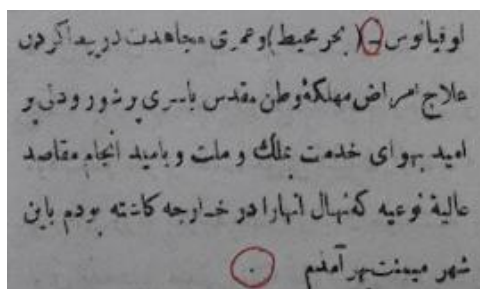 اوقیانوس ـ (بحر محیط) وعمری مجاهدت در پیدا کردن
علاج امراض مهلکهٔ وطن مقدس باسری پر شور و دلی پر
امید بهوای خدمت بملك و ملت و بامید انجام مقاصد
عالیهٔ نوعیه که نهال انهارا در خارجه کاشته بودم باین
شهر میمنت بهر آمدم .